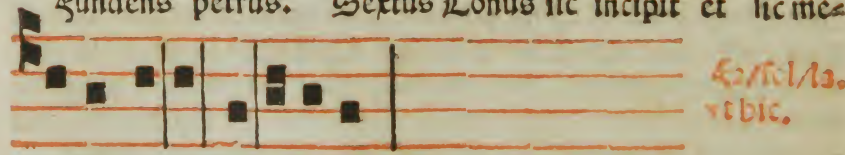 gundens petrus. Sextus Tonus sic incipit et sic me⸗
vt hic.